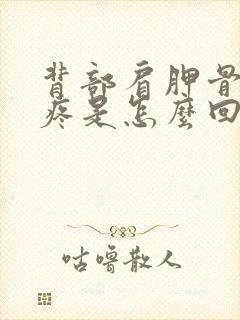 背部肩胛骨
疼是怎麼回
咕噜散人